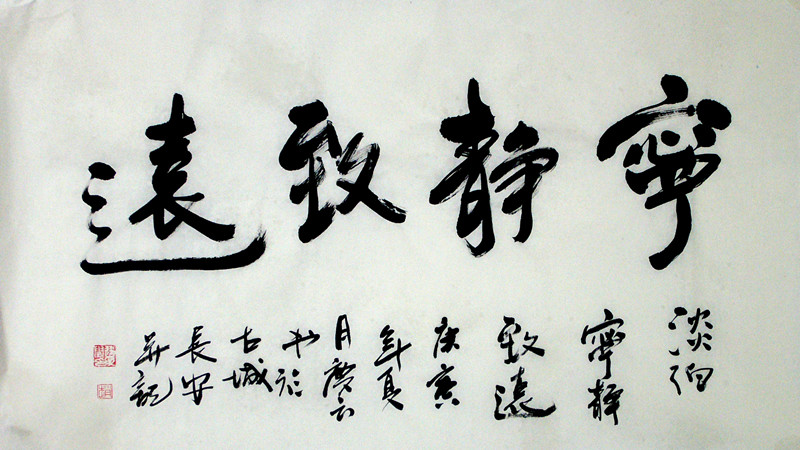 寧靜致遠
淡泊
寧靜
致遠
庚寅
年夏
月慶
书於
古城
長安
并記